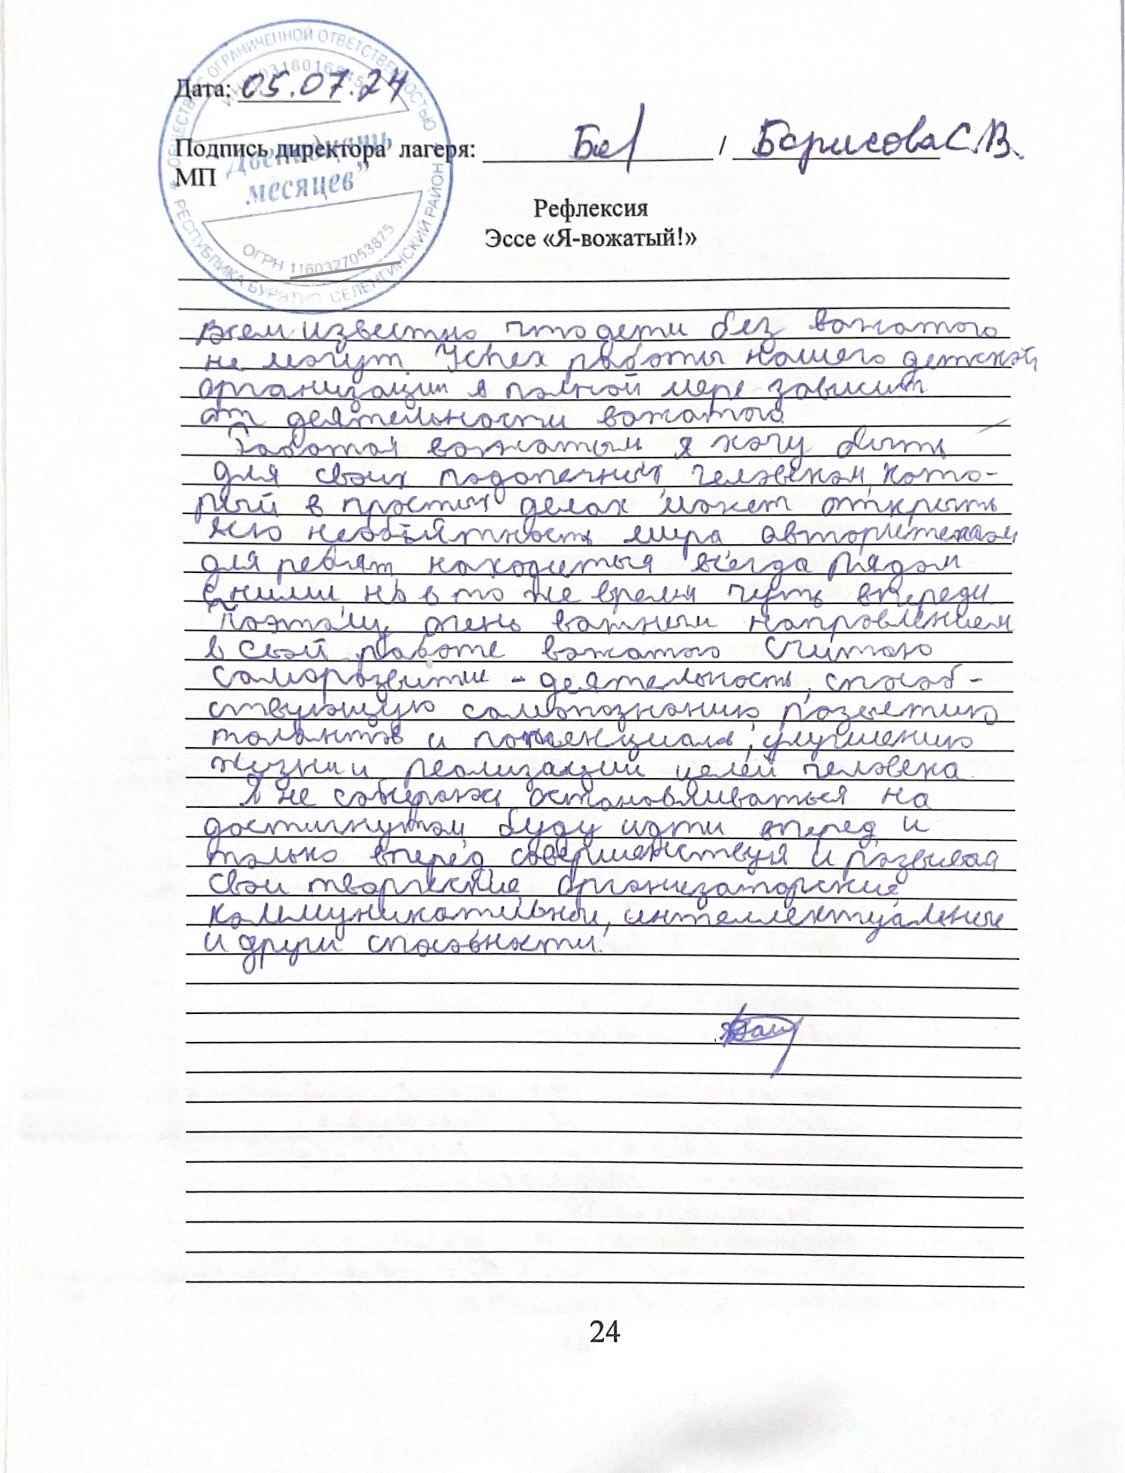 ОБЩЕСТВО С ОГРАНИЧЕННОЙ ОТВЕТСТВЕННОСТЬЮ
Дата: 05.07.24
Подпись директора лагеря: / Борисова С.В.
"Двенадцать
МП
месяцев"
ОГРН 1160327053875
РЕСПУБЛИКА БУРЯТИЯ СЕЛЕНГИНСКИЙ РАЙОН
Рефлексия
Эссе «Я-вожатый!»
Всем известно что дети без вожатого
не могут. Успех работы нашего детской
организации в полной мере зависит
от деятельности вожатого
Работая вожатым я хочу быть
для своих подопечных человеком, кото-
рый в простых делах может открыть
всю необъятность мира авторитетом
для ребят находиться всегда рядом
с ними, но в то же время чуть впереди
Поэтому очень важным направлением
в свой работе вожатого считаю
саморазвитие - деятельность, способ-
ствующую самопознанию, развитию
талантов и потенциала, улучшению
жизни и реализации целей человека.
Я не собираюсь останавливаться на
достигнутом буду идти вперед и
только вперёд совершенствуя и развивая
свои творческие организаторские
коммуникативной, интеллектуальные
и други способности.
24